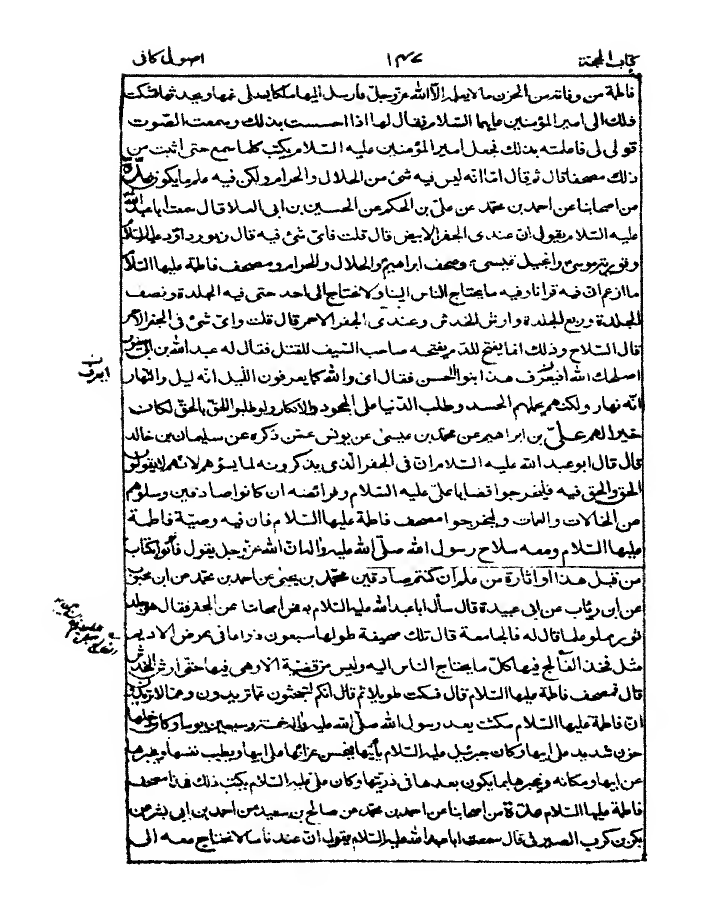 كتاب الحجة ١٤٧ اصول كافى
فاطمة من وفاته من الحزن ما لا يعلمه الا الله عز وجل فارسل اليها ملكا يسلى غمها ويحدثها فشكت
ذلك الى امير المؤمنين عليهما السلام فقال لها اذا احسست بذلك وسمعت الصوت
قولى لى فاعلمته بذلك فجعل امير المؤمنين عليه السلام يكتب كلما سمع حتى اثبت من
ذلك مصحفا قال ثم قال اما انه ليس فيه شئ من الحلال والحرام ولكن فيه علم ما يكون عدة
من اصحابنا عن احمد بن محمد عن على بن الحكم عن الحسين بن ابى العلا قال سمعت ابا عبد الله
عليه السلام يقول ان عندى الجفر الابيض قال قلت فاى شئ فيه قال زبور داود عليه السلام
وتورية موسى وانجيل عيسى وصحف ابراهيم والحلال والحرام ومصحف فاطمة عليها السلام
ما ازعم ان فيه قرانا وفيه ما يحتاج الناس الينا ولا نحتاج الى احد حتى فيه الجلدة ونصف
الجلدة وربع الجلدة وارش الخدش وعندى الجفر الاحمر قال قلت واى شئ فى الجفر الاحمر
قال السلاح وذلك انما يفتح للدم يفتحه صاحب السيف للقتل فقال له عبد الله بن ابى يعفور
اصلحك الله ايعرف هذا بنو الحسن فقال اى والله كما يعرفون الليل انه ليل والنهار
انه نهار ولكنهم يحملهم الحسد وطلب الدنيا على الجحود والانكار ولو طلبوا الحق بالحق لكان
خيرا لهم على بن ابراهيم عن محمد بن عيسى عن يونس عمن ذكره عن سليمان بن خالد
قال قال ابو عبد الله عليه السلام ان فى الجفر الذى يذكرونه لما يسؤهم لانهم لا يقولون
الحق والحق فيه فليخرجوا قضايا على عليه السلام وفرائضه ان كانوا صادقين وسلوهم
عن الخالات والعمات وليخرجوا مصحف فاطمة عليها السلام فان فيه وصية فاطمة
عليها السلام ومعه سلاح رسول الله صلى الله عليه واله ان الله عز وجل يقول فأتوا بكتاب
من قبل هذا او اثارة من علم ان كنتم صادقين محمد بن يحيى عن احمد بن محمد عن ابن محبوب
عن ابن رئاب عن ابى عبيدة قال سأل ابا عبد الله عليه السلام بعض اصحابنا عن الجفر فقال هو جلد
ثور مملو علما قال له فالجامعة قال تلك صحيفة طولها سبعون ذراعا فى عرض الاديم
مثل فخذ الفالج فيها كل ما يحتاج الناس اليه وليس من قضية الا وهى فيها حتى ارش الخدش
قال فمصحف فاطمة عليها السلام قال فسكت طويلا ثم قال انكم لتبحثون عما تريدون وعما لا تريدون
ان فاطمة عليها السلام مكثت بعد رسول الله صلى الله عليه واله خمسة وسبعين يوما وكان دخلها
حزن شديد على ابيها وكان جبرئيل عليه السلام يأتيها فيحسن عزائها على ابيها ويطيب نفسها ويخبرها
عن ابيها ومكانه ويخبرها بما يكون بعدها فى ذريتها وكان على عليه السلام يكتب ذلك فهذا مصحف
فاطمة عليها السلام عدة من اصحابنا عن احمد بن محمد عن صالح بن سعيد عن احمد بن ابى بشر عن
بكر بن كرب الصيرفى قال سمعت ابا عبد الله عليه السلام يقول ان عندنا ما لا نحتاج معه الى